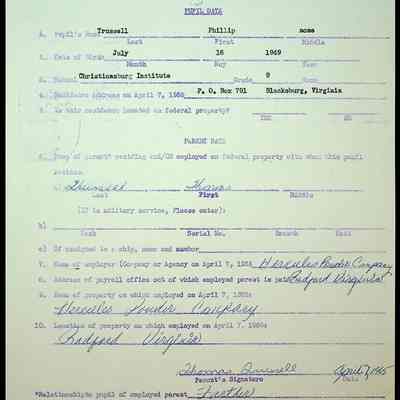 PUPIL DATA
1. Pupil's Name Trussell Phillip none
Last First Middle
2. Date of Birth July 16 1949
Month Day Year
3. School Christiansburg Institute Grade 9 Room
4. Residence Address on April 7, 1965 P. O. Box 791 Blacksburg, Virginia
5. Is this residence located on federal property?
YES NO
PARENT DATA
6. Name of parent* residing and/OR employed on federal property with whom this pupil
resides.
a) Trussell Thomas
Last First Middle
(If in military service, Please enter):
b)
Rank Serial No. Branch Unit
c) If assigned to a ship, name and number
7. Name of employer (Company or Agency on April 7, 1965 Hercules Powder Company
8. Address of payroll office out of which employed parent is paid Radford Virginia
9. Name of property on which employed on April 7, 1965:
Hercules Powder Company
10. Location of property on which employed on April 7, 1965:
Radford Virginia
Thomas Trussell April 7, 1965
Parent's Signature Date
*Relationship to pupil of employed parent Father